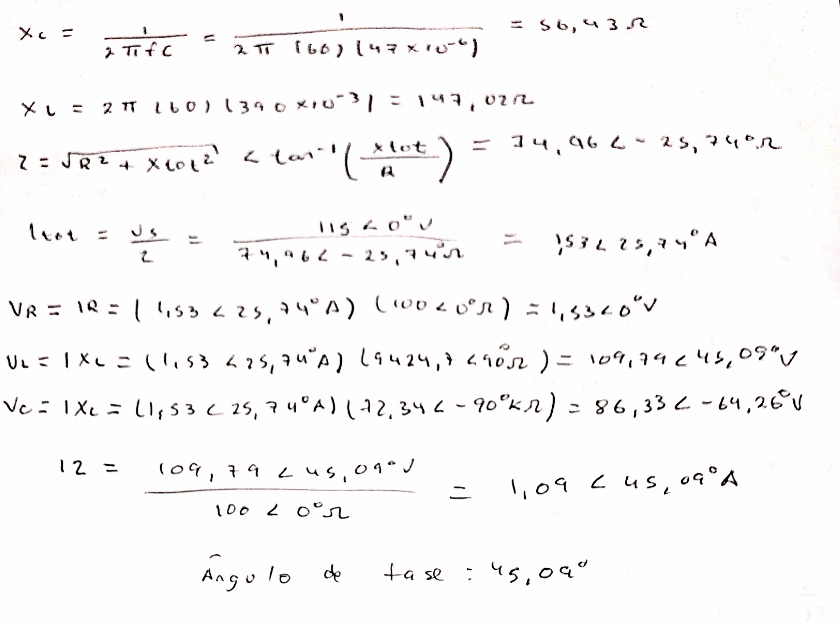 Xc = 1 / 2πfC = 1 / 2π (60) (47×10⁻⁶) = 56,43Ω
XL = 2π (60) (390×10⁻³) = 147,02Ω
Z = √R² + Xtot² < tan⁻¹ (Xtot / R) = 74,96 < -25,74°Ω
Itot = Vs / Z = 115<0°V / 74,96<-25,74°Ω = 1,53<25,74°A
VR = IR = (1,53<25,74°A) (100<0°Ω) = 1,53<0°V
VL = IXL = (1,53<25,74°A) (9424,7<90°Ω) = 109,79<45,09°V
Vc = IXc = (1,53<25,74°A) (72,34<-90°KΩ) = 86,33<-64,26°V
I2 = 109,79<45,09°V / 100<0°Ω = 1,09<45,09°A
Ângulo de fase : 45,09°